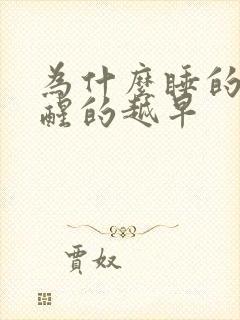 為什麼睡的
醒的越早
賈奴